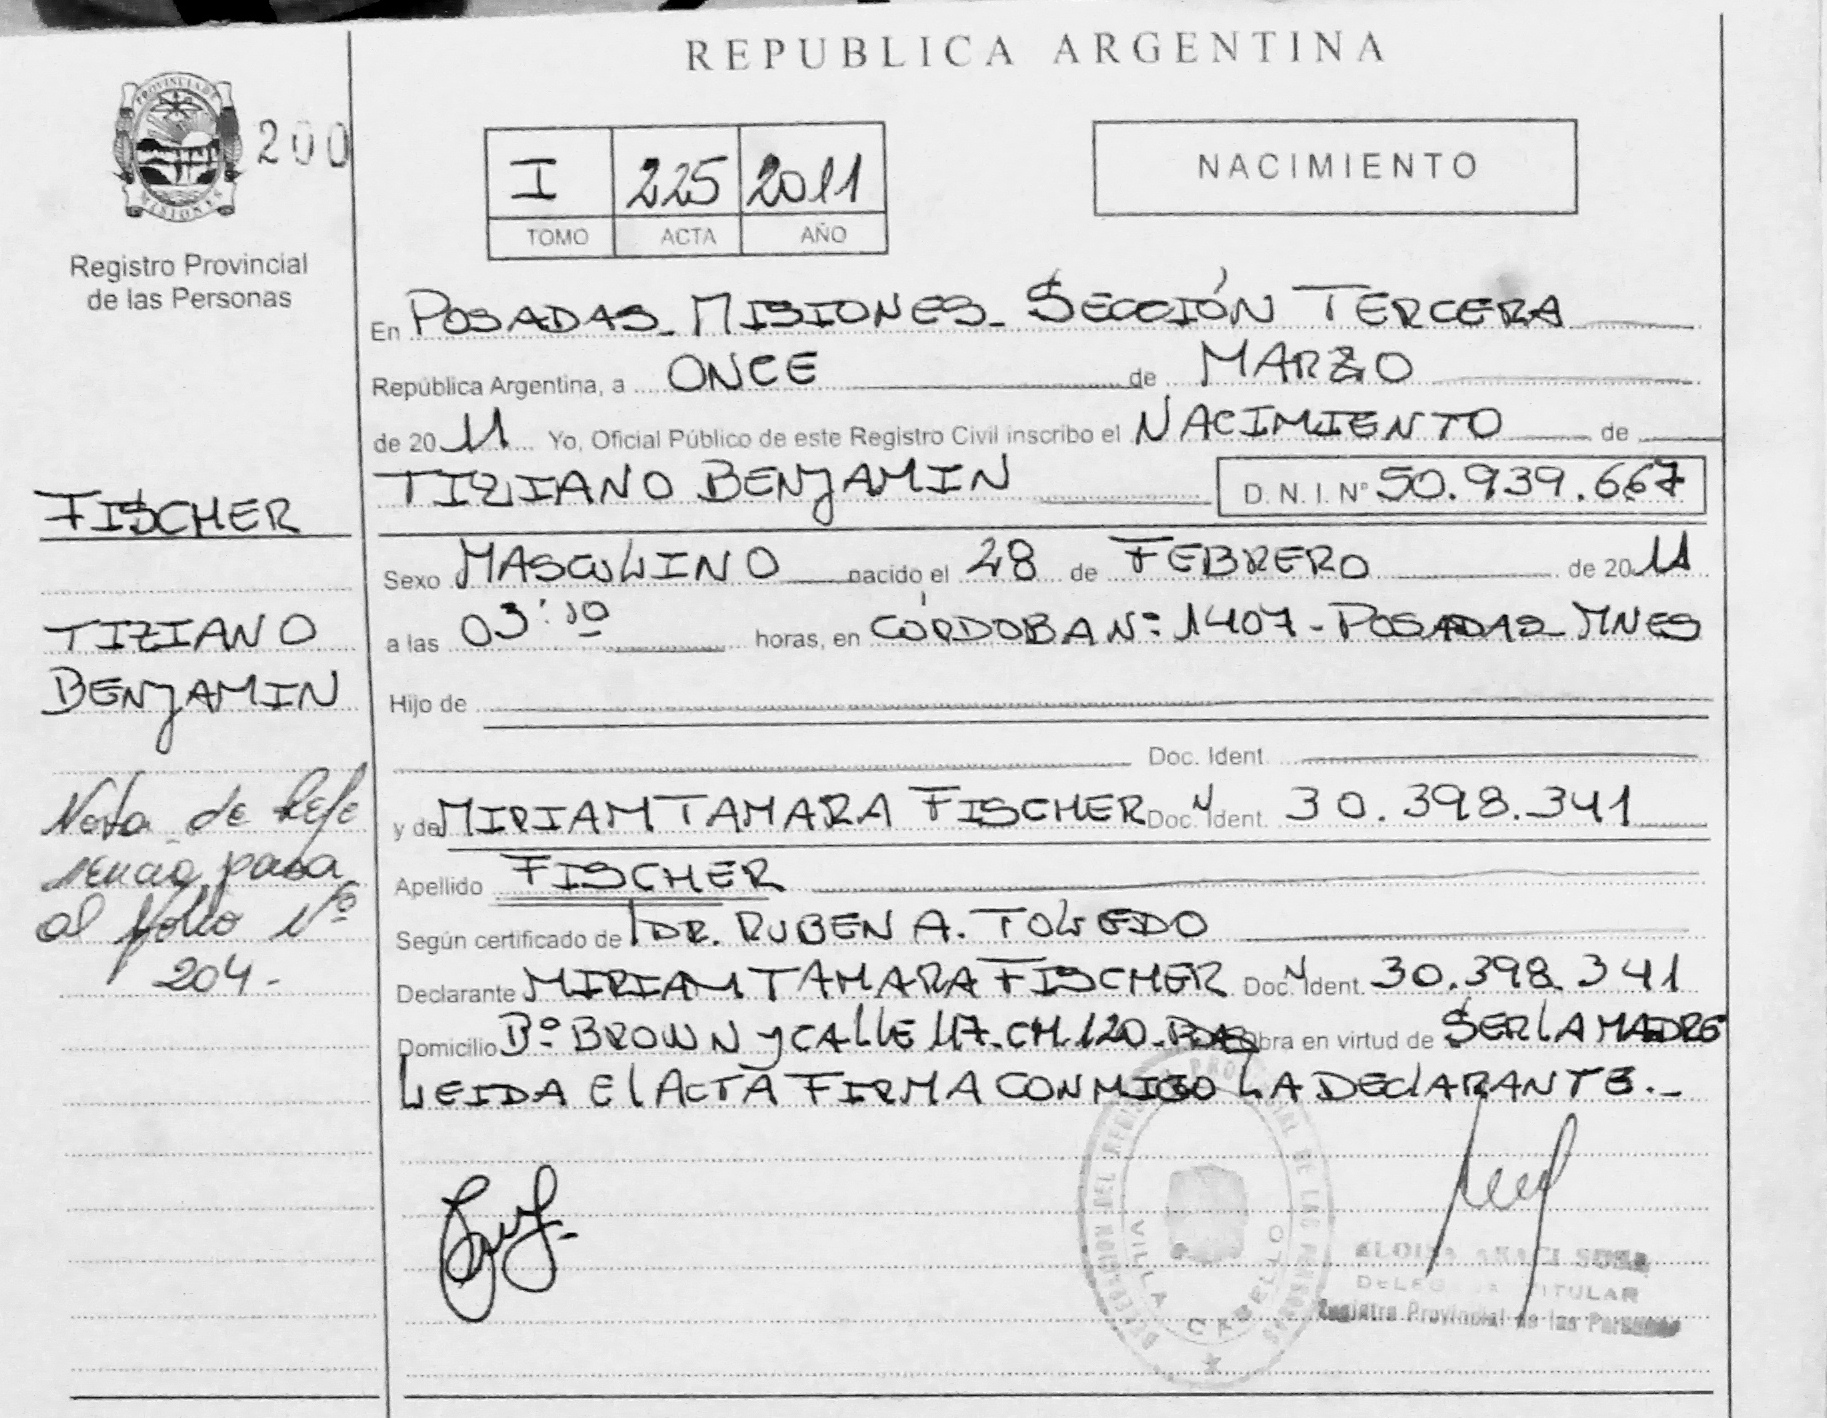 REPUBLICA ARGENTINA
PROVINCIA DE
MISIONES
200
Registro Provincial
de las Personas
I 225 2011
TOMO ACTA AÑO
NACIMIENTO
En POSADAS - MISIONES - SECCIÓN TERCERA
República Argentina, a ONCE de MARZO
de 2011 Yo, Oficial Público de este Registro Civil inscribo el NACIMIENTO de
TIZIANO BENJAMIN D.N.I. Nº 50.939.667
Sexo MASCULINO nacido el 28 de FEBRERO de 2011
a las 03:10 horas, en CÓRDOBA Nº 1407 - POSADAS - MNES
Hijo de
Doc. Ident.
y de MIRIAM TAMARA FISCHER Doc. Ident. Nº 30.398.341
Apellido FISCHER
Según certificado de DR. RUBEN A. TOLEDO
Declarante MIRIAM TAMARA FISCHER Doc. Ident. Nº 30.398.341
Domicilio Bº BROWN Y CALLE 117 - CH. 120 - PDAS Obra en virtud de SER LA MADRE
LEIDA El ACTA FIRMA CONMIGO LA DEClARANTE.-
FISCHER
TIZIANO
BENJAMIN
Nota de Refe
rencia pasa
al folio Nº
204.-
VILLA CABELLO
TITULAR
Registro Provincial de las Personas